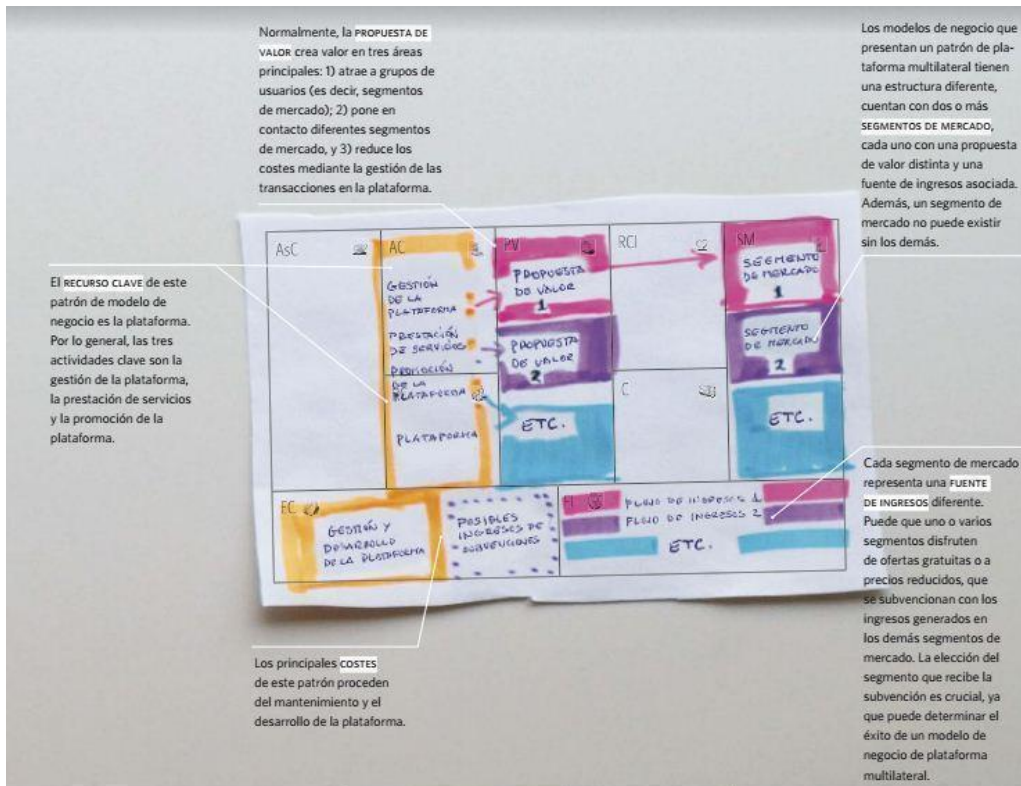 Normalmente, la PROPUESTA DE
VALOR crea valor en tres áreas
principales: 1) atrae a grupos de
usuarios (es decir, segmentos
de mercado); 2) pone en
contacto diferentes segmentos
de mercado, y 3) reduce los
costes mediante la gestión de las
transacciones en la plataforma.
Los modelos de negocio que
presentan un patrón de pla-
taforma multilateral tienen
una estructura diferente,
cuentan con dos o más
SEGMENTOS DE MERCADO,
cada uno con una propuesta
de valor distinta y una
fuente de ingresos asociada.
Además, un segmento de
mercado no puede existir
sin los demás.
El RECURSO CLAVE de este
patrón de modelo de
negocio es la plataforma.
Por lo general, las tres
actividades clave son la
gestión de la plataforma,
la prestación de servicios
y la promoción de la
plataforma.
AsC
AC
GESTIÓN
DE LA
PLATAFORMA
PRESTACIÓN
DE SERVICIOS
PROMOCIÓN
DE LA
PLATAFORMA
PLATAFORMA
PV
PROPUESTA
DE VALOR
1
PROPUESTA
DE VALOR
2
ETC.
RCl
C
SM
SEGMENTO
DE MERCADO
1
SEGMENTO
DE MERCADO
2
ETC.
EC
GESTIÓN Y
DESARROLLO
DE LA PLATAFORMA
POSIBLES
INGRESOS DE
SUBVENCIONES
FI
FLUJO DE INGRESOS 1
FLUJO DE INGRESOS 2
ETC.
Cada segmento de mercado
representa una FUENTE
DE INGRESOS diferente.
Puede que uno o varios
segmentos disfruten
de ofertas gratuitas o a
precios reducidos, que
se subvencionan con los
ingresos generados en
los demás segmentos de
mercado. La elección del
segmento que recibe la
subvención es crucial, ya
que puede determinar el
éxito de un modelo de
negocio de plataforma
multilateral.
Los principales COSTES
de este patrón proceden
del mantenimiento y el
desarrollo de la plataforma.